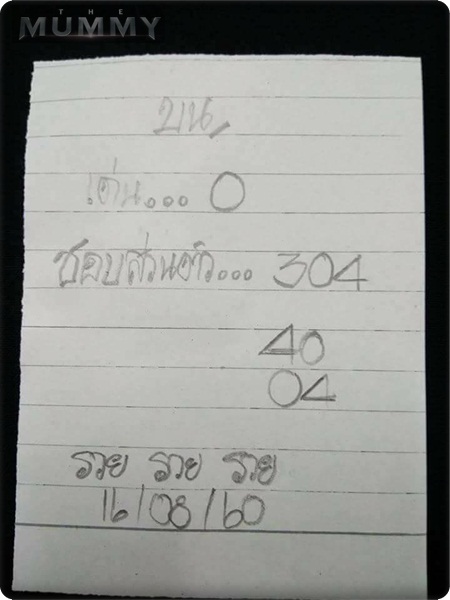 THE
MUMMY
บน
เด่น... 0
ชอบส่วนตัว... 304
40
04
รวย รวย รวย
16/08/60